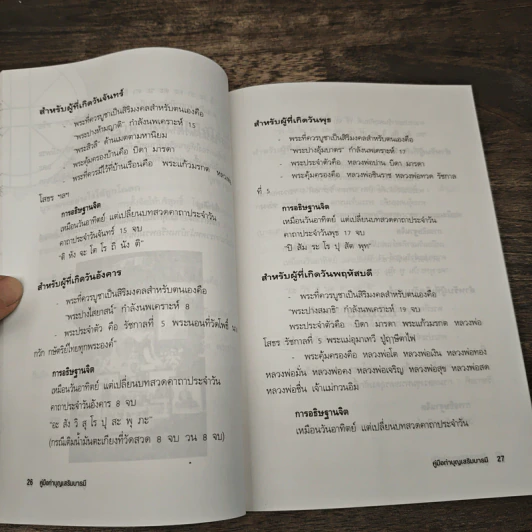 สำหรับผู้ที่เกิดวันจันทร์
- พระที่ควรบูชาเป็นสิริมงคลสำหรับตนเองคือ
"พระปางห้ามญาติ" กำลังนพเคราะห์ 15
"พระสิวลี" ด้านเมตตามหานิยม
- พระคุ้มครองบ้านคือ บิดา มารดา
- พระที่ควรมีไว้ที่บ้านเรือนคือ พระแก้วมรกต หลวงพ่อ
โสธร ฯลฯ
การอธิษฐานจิต
เหมือนวันอาทิตย์ แต่เปลี่ยนบทสวดคาถาประจำวัน
คาถาประจำวันจันทร์ 15 จบ
"อิ ทัง จะ โต โร ถิ นัง ติ"
สำหรับผู้ที่เกิดวันอังคาร
- พระที่ควรบูชาเป็นสิริมงคลสำหรับตนเองคือ
"พระปางไสยาสน์" กำลังนพเคราะห์ 8
- พระประจำตัว คือ รัชกาลที่ 5 พระนอนที่วัดโพธิ์
กวัก กษัตริย์ไทยทุกพระองค์
การอธิษฐานจิต
เหมือนวันอาทิตย์ แต่เปลี่ยนบทสวดคาถาประจำวัน
คาถาประจำวันอังคาร 8 จบ
"อะ สัง วิ สุ โร ปุ สะ พุ ภะ"
(กรณีเติมน้ำมันตะเกียงที่วัดสวด 8 จบ วน 8 จบ)
26 คู่มือทำบุญเสริมบารมี
สำหรับผู้ที่เกิดวันพุธ
- พระที่ควรบูชาเป็นสิริมงคลสำหรับตนเองคือ
"พระปางอุ้มบาตร" กำลังนพเคราะห์ 17
- พระประจำตัวคือ หลวงพ่อปาน บิดา มารดา
- พระคุ้มครองคือ หลวงพ่อชินราช หลวงพ่อทวด รัชกาล
ที่ 5
การอธิษฐานจิต
เหมือนวันอาทิตย์ แต่เปลี่ยนบทสวดคาถาประจำวัน
คาถาประจำวันพุธ 17 จบ
"ปิ สัม ระ โร ปุ สัต พุท"
สำหรับผู้ที่เกิดวันพฤหัสบดี
- พระที่ควรบูชาเป็นสิริมงคลสำหรับตนเองคือ
"พระปางสมาธิ" กำลังนพเคราะห์ 19 จบ
- พระประจำตัวคือ บิดา มารดา พระแก้วมรกต หลวงพ่อ
โสธร รัชกาลที่ 5 พระแม่อุมาเทวี ปู่ฤาษีตาไฟ
- พระคุ้มครองคือ หลวงพ่อโต หลวงพ่อเงิน หลวงพ่อทอง
หลวงพ่อมั่น หลวงพ่อคง หลวงพ่อเจริญ หลวงพ่อสุข หลวงพ่อสด
หลวงพ่อชื่น เจ้าแม่กวนอิม
การอธิษฐานจิต
เหมือนวันอาทิตย์ แต่เปลี่ยนบทสวดคาถาประจำวัน
คู่มือทำบุญเสริมบารมี 27